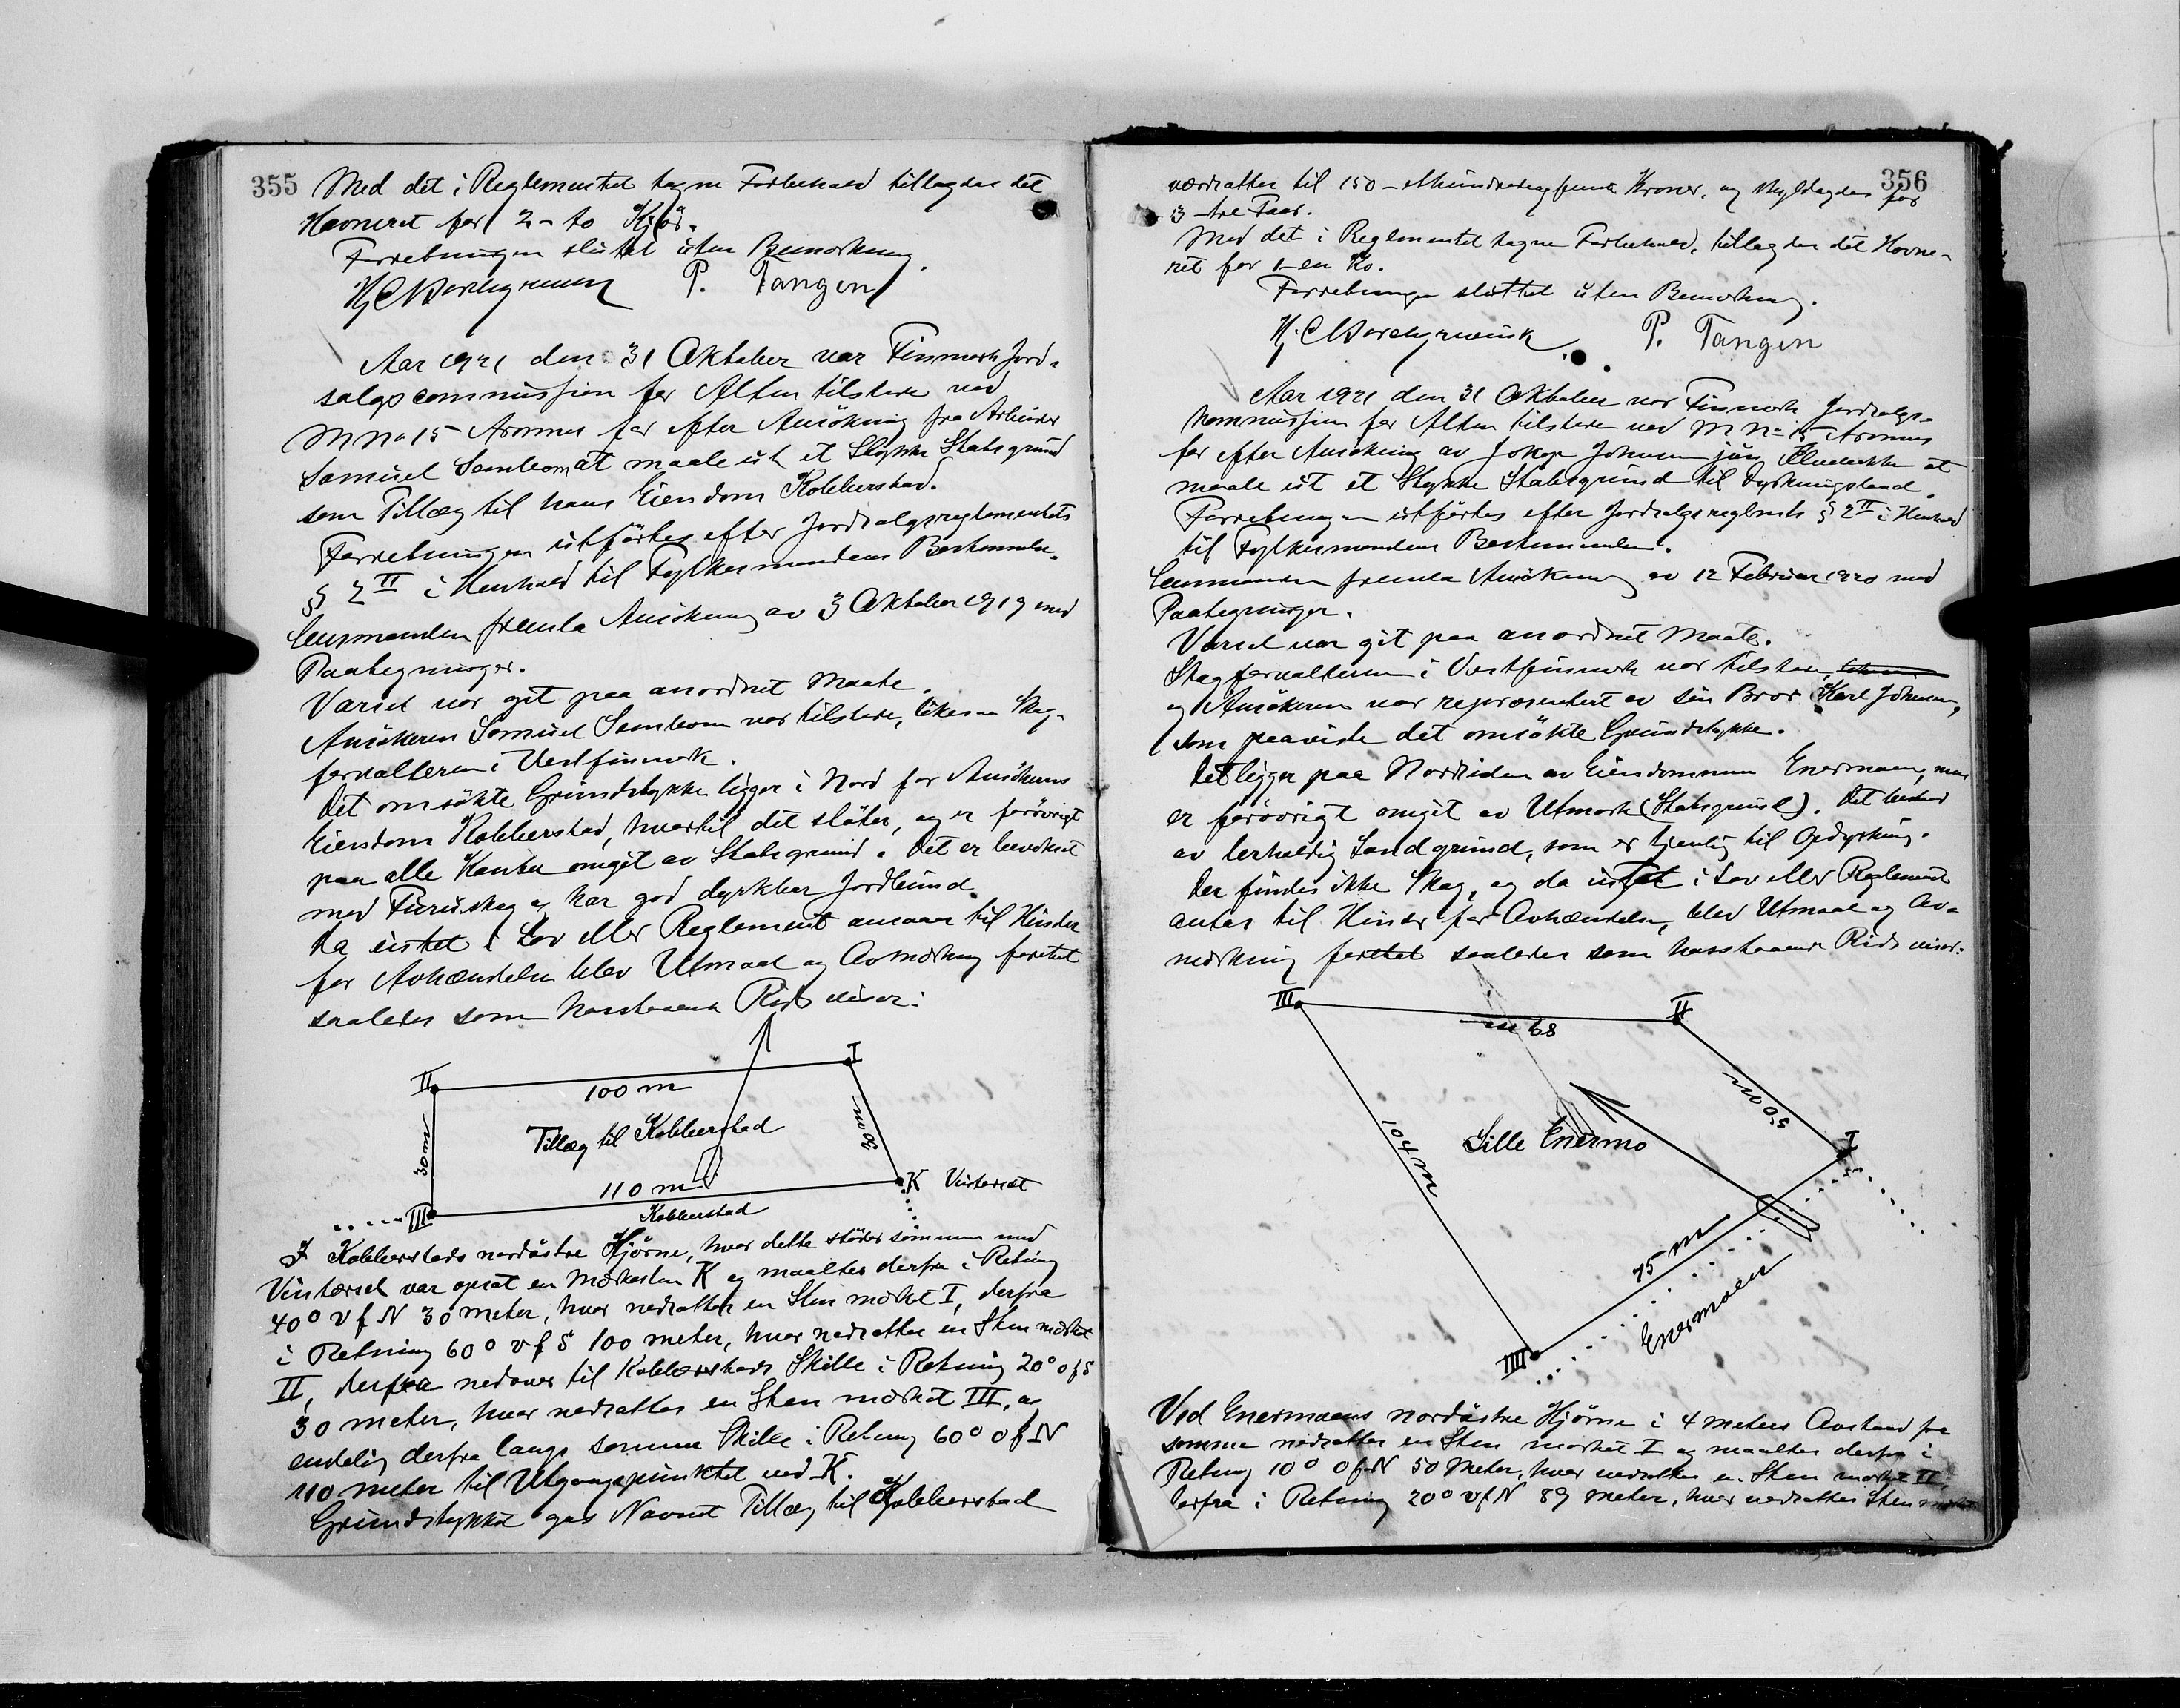 355 Med det i Reglementet tagne Forbehold tillagdes det
Havneret for 2 - to Kjør.
Forretningen sluttet uten Bemerkning.
P. Tangen
Aar 1921 den 31 Oktober var Finmark Jord-
salgscommission for Alten tilstede ved
M No 15 Aronnes for efter Ansökning fra Arbeider
Samuel Samborn at maale ut et Stykke Statsgrund
som Tillæg til hans Eiendom Kobberstad.
Forretningen utførtes efter Jordsalgsreglementets
§ 2 II i Henhold til Fylkesmandens Bestemmelse.
Lensmanden fremla Ansökning av 3 Oktober 1919 med
Paategninger.
Varsel var git paa anordnet Maate.
Ansökeren Samuel Samborn var tilstede, likesaa Skog-
forvalteren i Vestfinmark.
Det omsökte Grundstykke ligger i Nord for Ansökerens
Eiendom Kobberstad, hvortil det stöter, og er forövrigt
paa alle Kanter omgit av Statsgrund. Det er bevokset
med Furuskog og har god dyrkbar Jordbund.
Da intet i Lov eller Reglement ansaaes til Hinder
for Avhændelsen blev Utmaal og Avmerkning foretat
saaledes som hosstaaende Rids viser:
II 100 m I
30 m Tillæg til Kobberstad 30 m
110 m K Vintersæt
III Kobberstad
I Kobberstads nordöstre Hjörne, hvor dette stöter sammen med
Vintersæt var opsat en Merkesten K og maaltes derfra i Retning
40° v f N 30 meter, hvor nedsattes en Sten merket I, derfra
i Retning 60° v f S 100 meter, hvor nedsattes en Sten merket
II, derfra nedover til Kobberstads Skille i Retning 20° o f S
30 meter, hvor nedsattes en Sten merket III, og
endelig derfra langs samme Skille i Retning 60° o f N
110 meter til Utgangspunktet ved K.
Grundstykket gaves Navnet Tillæg til Kobberstad
356
værdsattes til 150 - ethundredeogfemti Kroner, og skyldsattes for
3 - tre Daler.
Med det i Reglementet tagne Forbehold, tillagdes det Havne-
ret for 1 - en Ko.
Forretningen sluttet uten Bemerkning.
P. Tangen
Aar 1921 den 31 Oktober var Finmark Jordsalgs-
kommission for Alten tilstede ved M No 15 Aronnes
for efter Ansökning av Johan Johnsen jun, Elvebakken at
maale ut et Stykke Statsgrund til Dyrkningsland.
Forretningen utførtes efter Jordsalgsreglmts § 2 II i Henhold
til Fylkesmandens Bestemmelse.
Lensmanden fremla Ansökning av 12 Februar 1920 med
Paategninger.
Varsel var git paa anordnet Maate.
Skogforvalteren i Vestfinmark var tilstede,
og Ansökeren var repræsentert av sin Bror Karl Johnsen,
som paaviste det omsökte Grundstykke.
Det ligger paa Nordsiden av Eiendommen Enermoen, men
er forövrigt omgit av Utmark (Statsgrund). Det bestaar
av lerholdig Sandgrund, som er tjenlig til Opdyrkning.
Der findes ikke Skog, og da intet i Lov eller Reglement
antas til Hinder for Avhændelse, blev Utmaal og Av-
merkning foretat saaledes som hosstaaende Rids viser:
III 89 m II
50 m
Lille Enermo I
104 m
75 m
Enermoen
IIII
Ved Enermoens nordöstre Hjörne i 4 meters Avstand fra
samme nedsattes en Sten merket I og maaltes derfra i
Retning 10° o f N 50 Meter, hvor nedsattes en Sten merket II,
derfra i Retning 20° v f N 89 meter, hvor nedsattes Sten merket